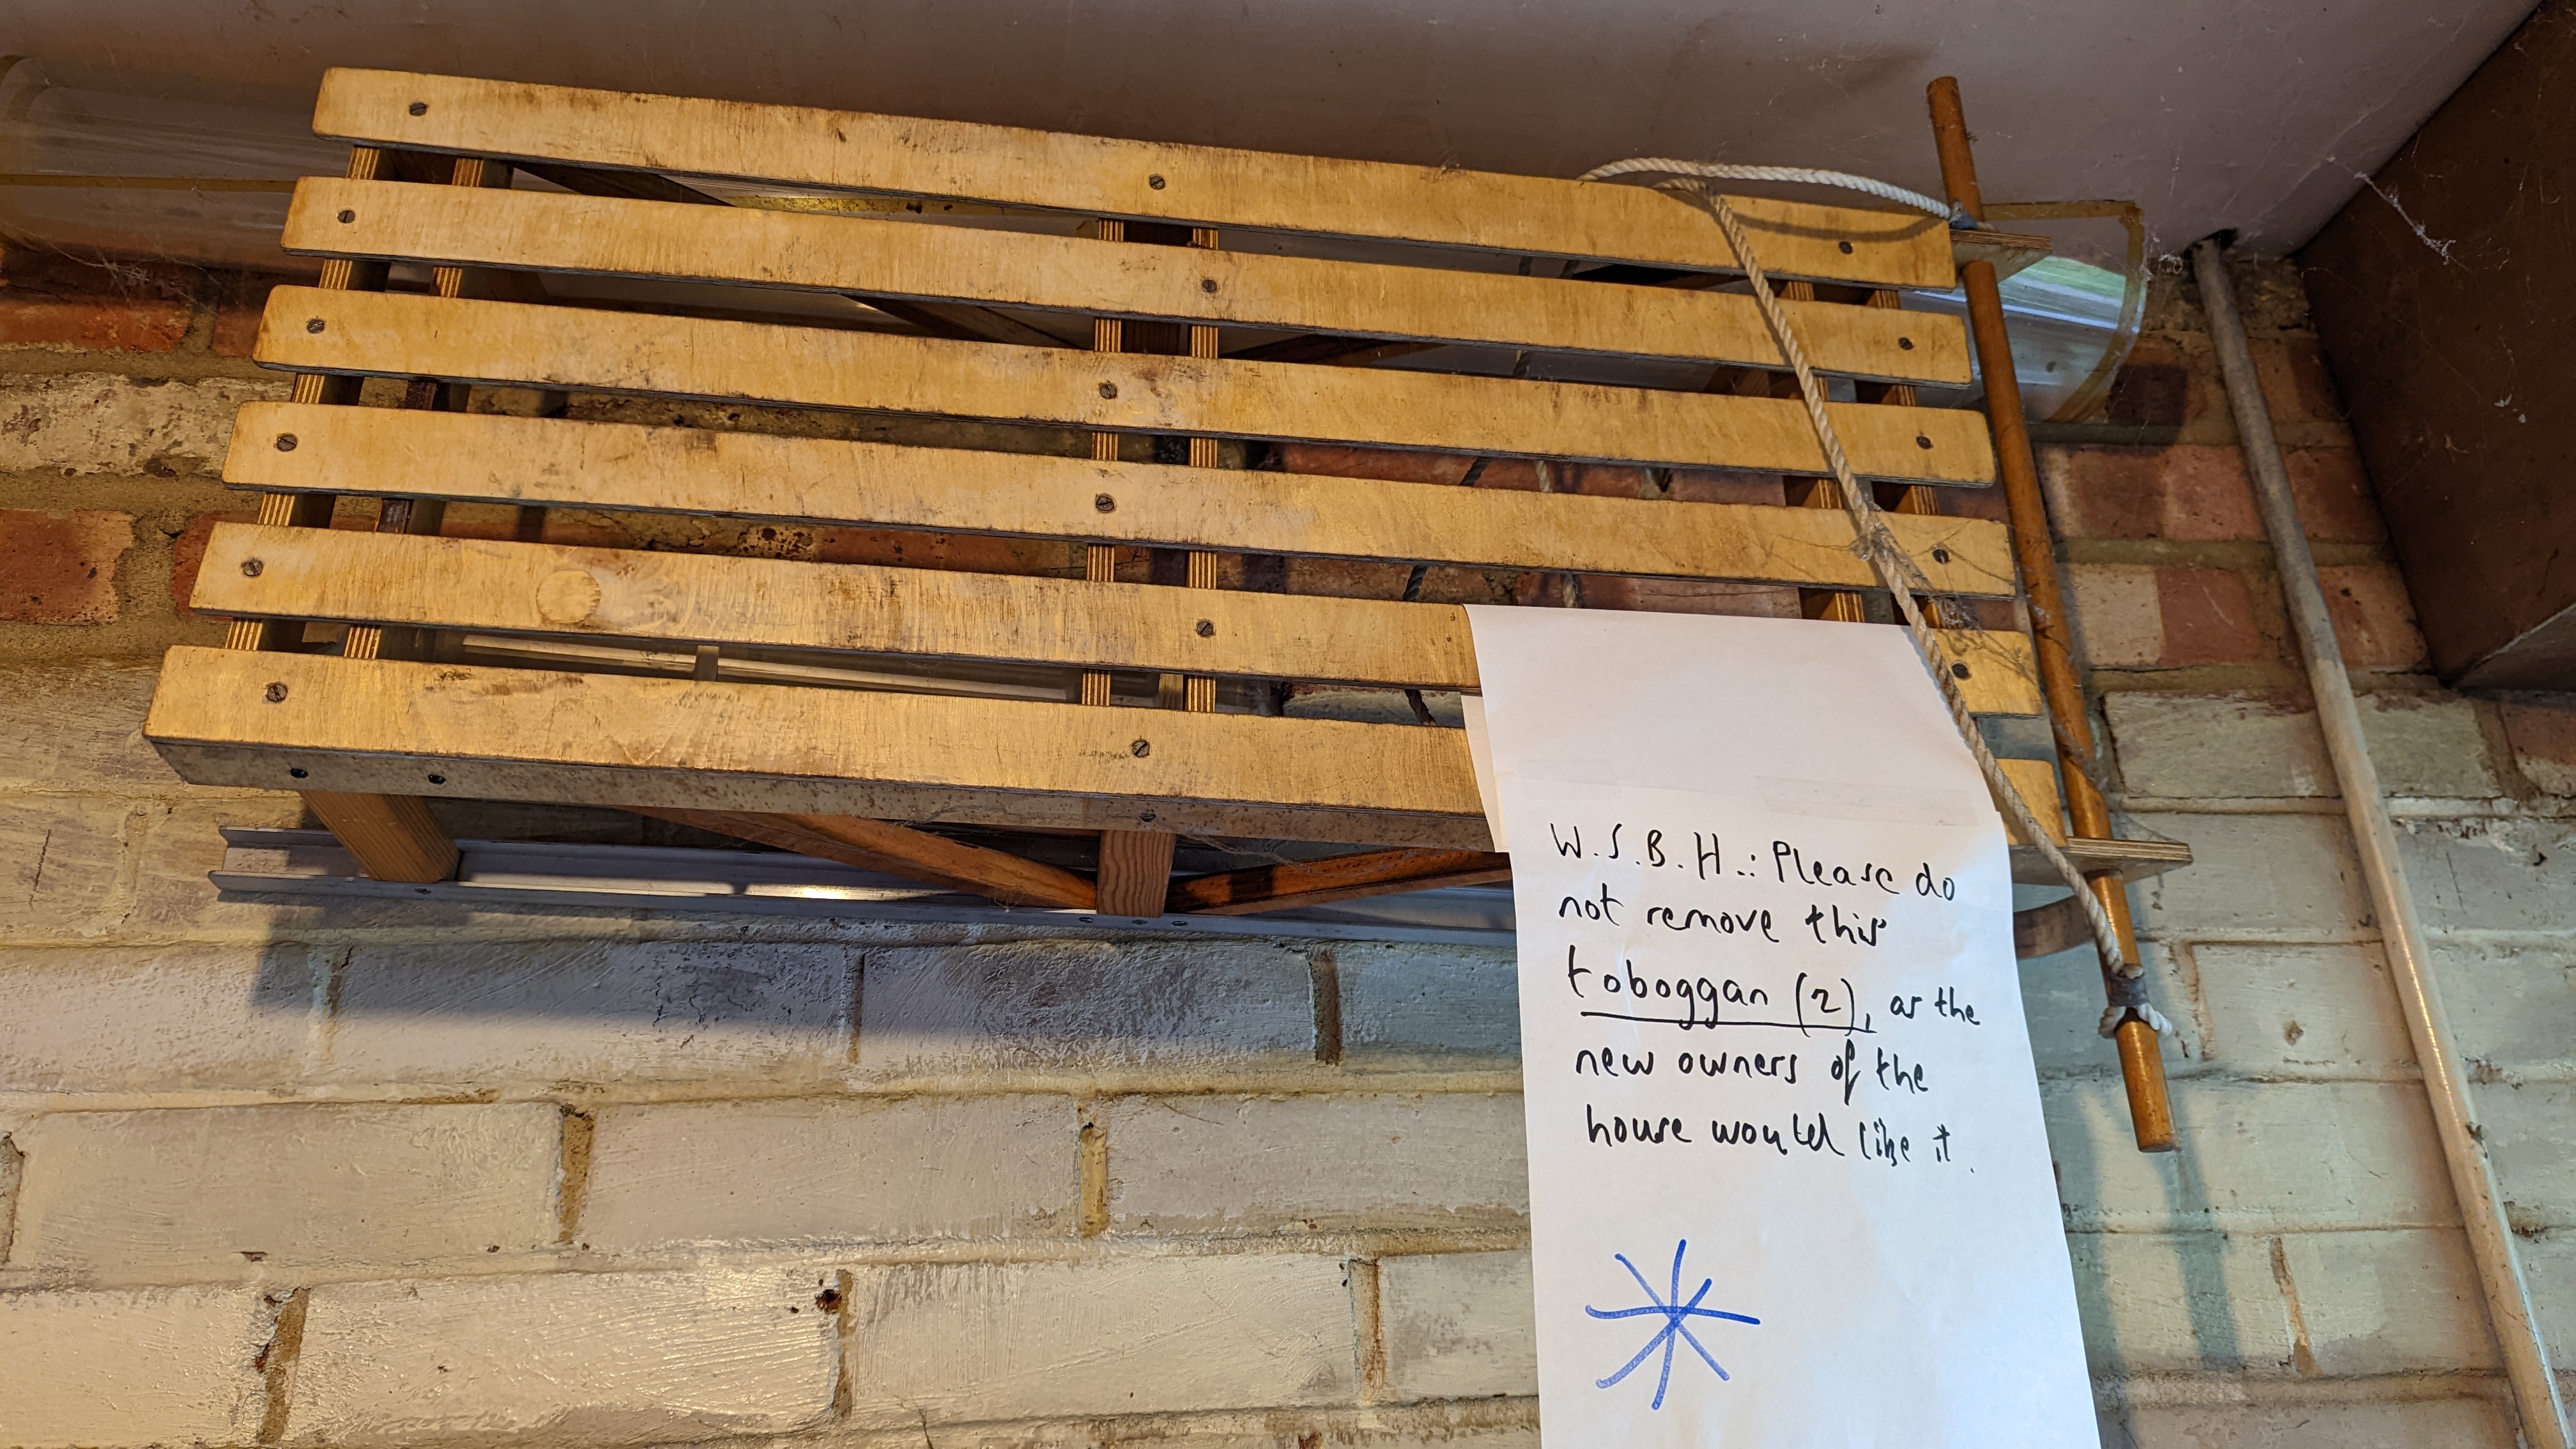 W.S.B.H.: Please do
not remove this
toboggan (2), as the
new owners of the
house would like it.